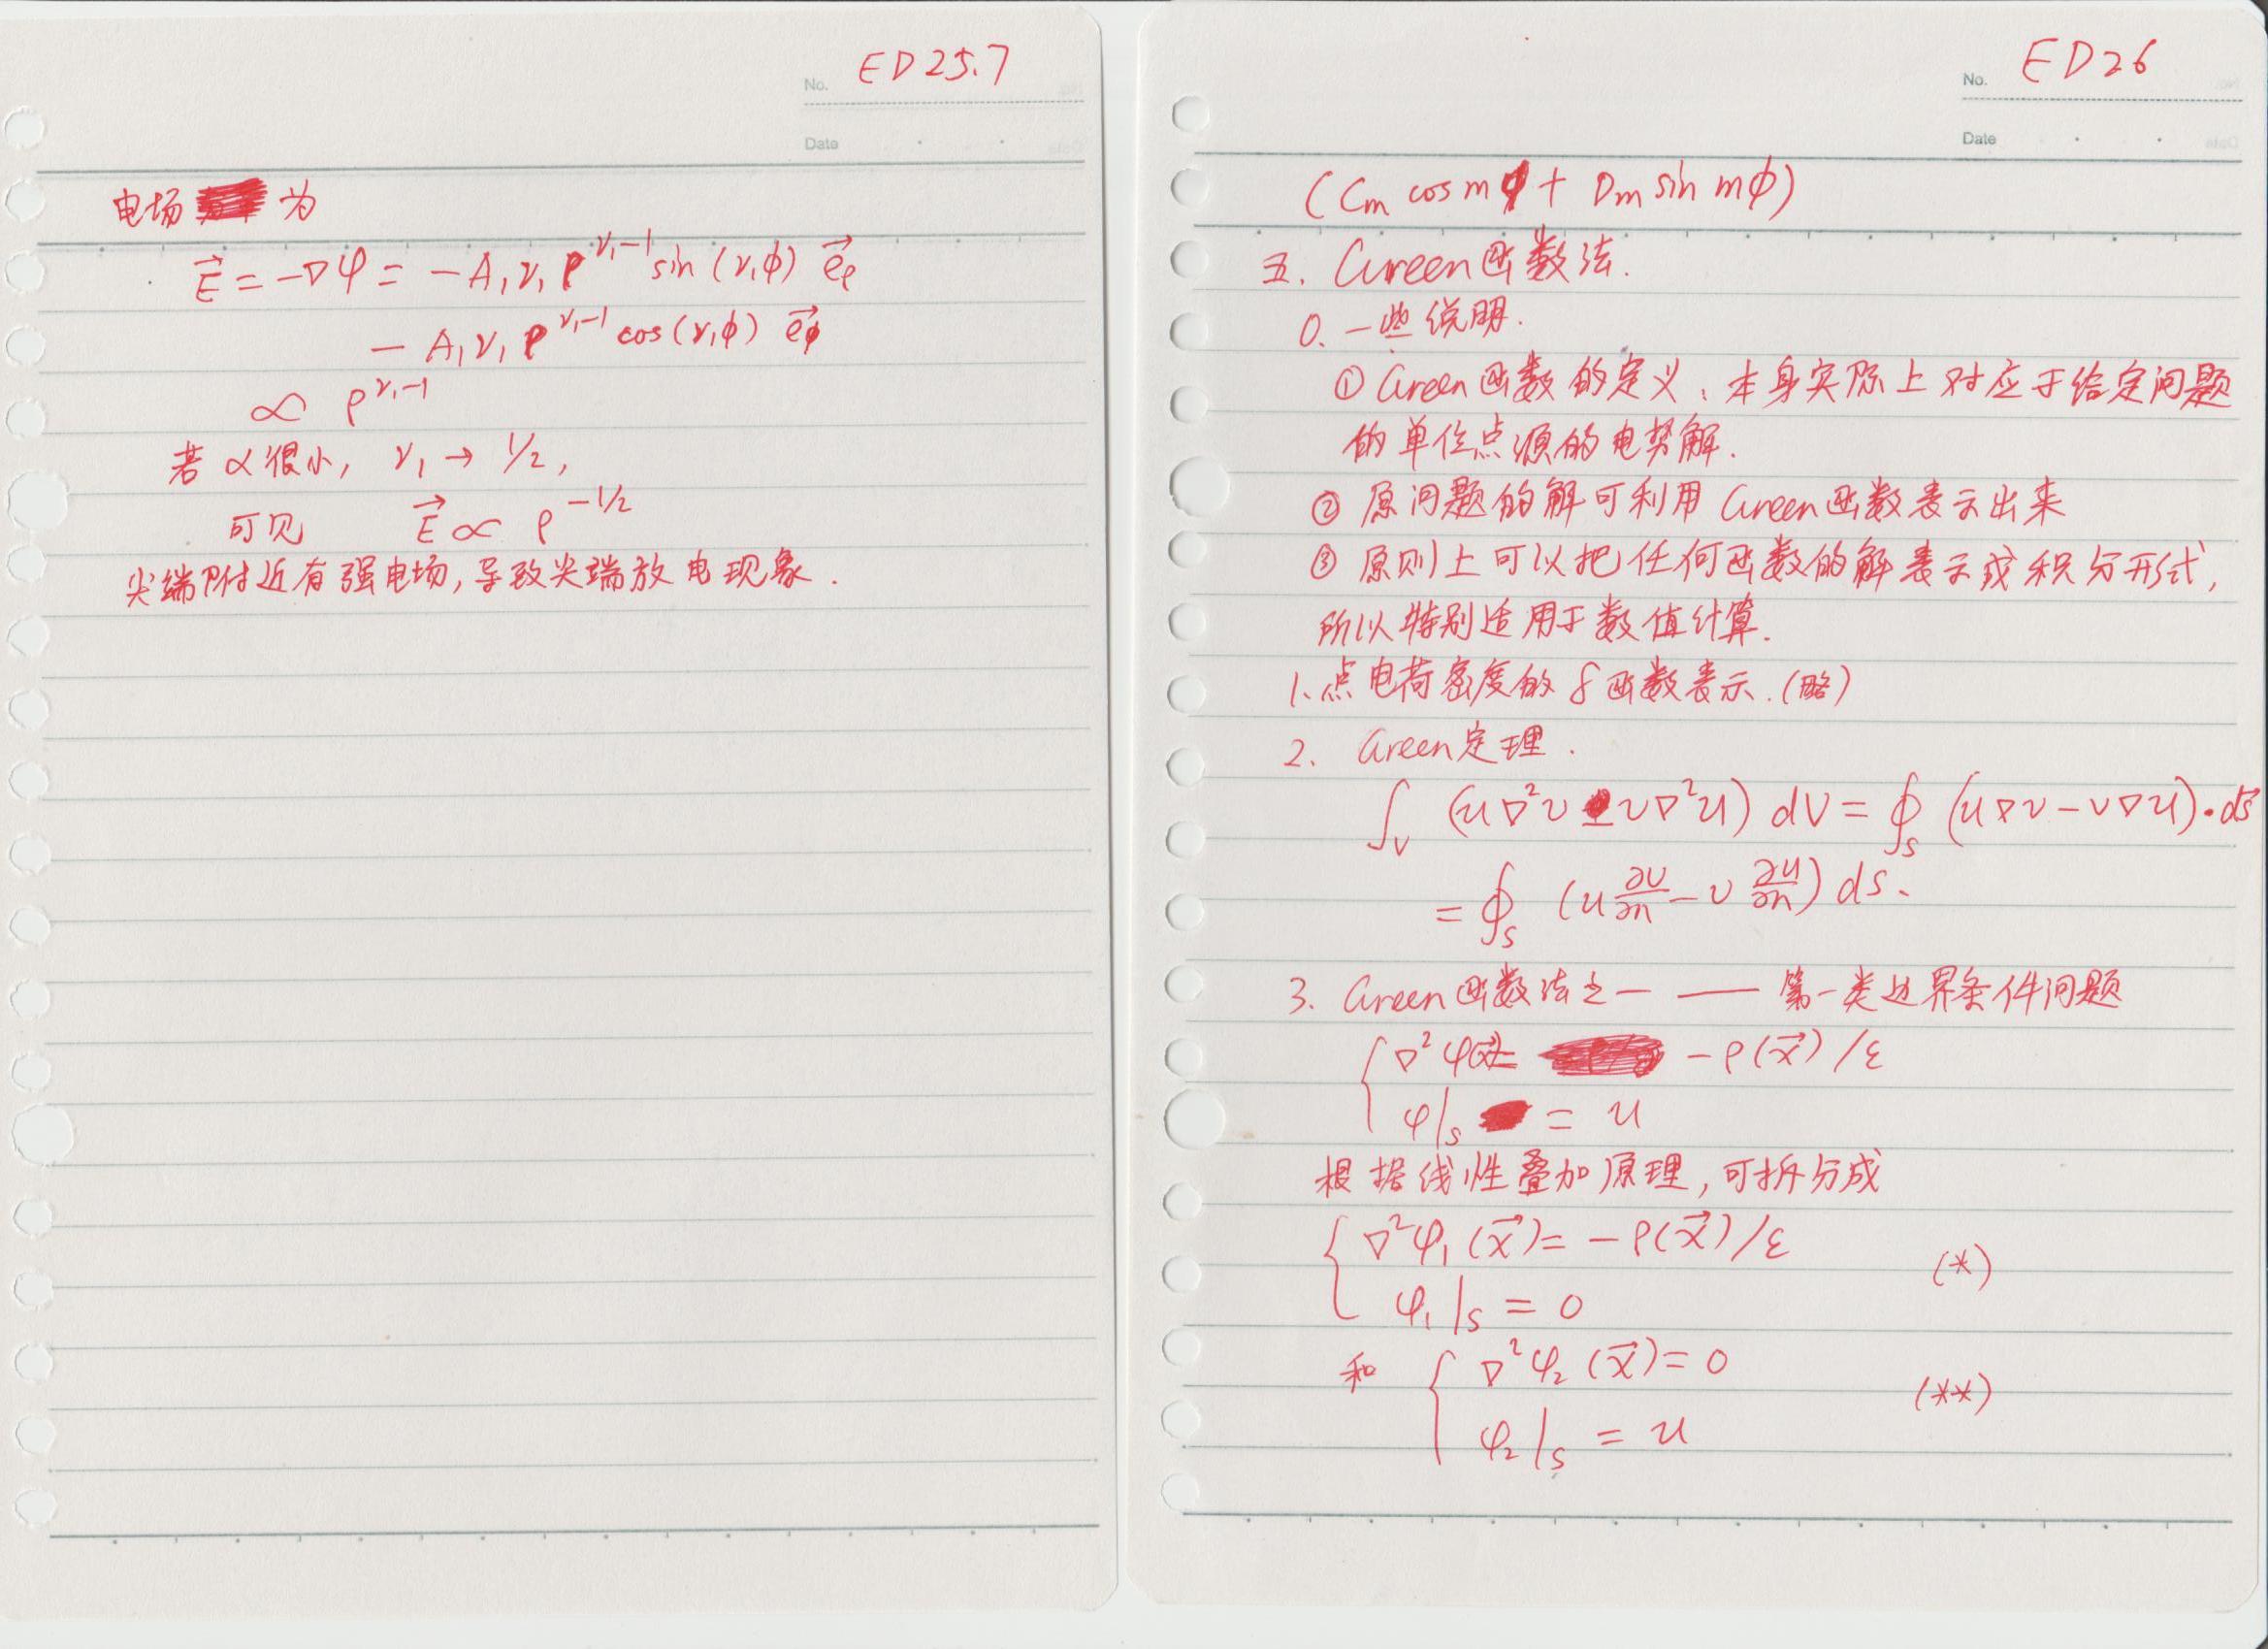 No. ED25.7
Date
电场为
$\vec{E} = -\nabla\varphi = -A_1\nu_1\rho^{\nu_1-1}\sin(\nu_1\phi)\ \vec{e_\rho}$
$- A_1\nu_1\rho^{\nu_1-1}\cos(\nu_1\phi)\ \vec{e_\phi}$
$\propto \rho^{\nu_1-1}$
若α很小, $\nu_1 \to 1/2$,
可见 $\vec{E} \propto \rho^{-1/2}$
尖端附近有强电场,导致尖端放电现象.
No. ED26
Date
$(C_m \cos m\phi + D_m \sin m\phi)$
五. Green函数法.
0. 一些说明.
① Green函数的定义、本身实际上对应于给定问题
的单位点源的电势解.
② 原问题的解可利用Green函数表示出来
③ 原则上可以把任何函数的解表示成积分形式,
所以特别适用于数值计算.
1.点电荷密度的δ函数表示.(略)
2. Green定理.
$\int_V (u\nabla^2 v - v\nabla^2 u)\,dV = \oint_S (u\nabla v - v\nabla u)\cdot d\vec{s}$
$= \oint_S (u\frac{\partial v}{\partial n} - v\frac{\partial u}{\partial n})\,ds.$
3. Green函数法之一 —— 第一类边界条件问题
$\nabla^2\varphi(\vec{x}) = -\rho(\vec{x})/\varepsilon$
$\varphi|_S = u$
根据线性叠加原理,可拆分成
$\nabla^2\varphi_1(\vec{x}) = -\rho(\vec{x})/\varepsilon$
$\varphi_1|_S = 0$ (*)
和 $\nabla^2\varphi_2(\vec{x}) = 0$
$\varphi_2|_S = u$ (**)